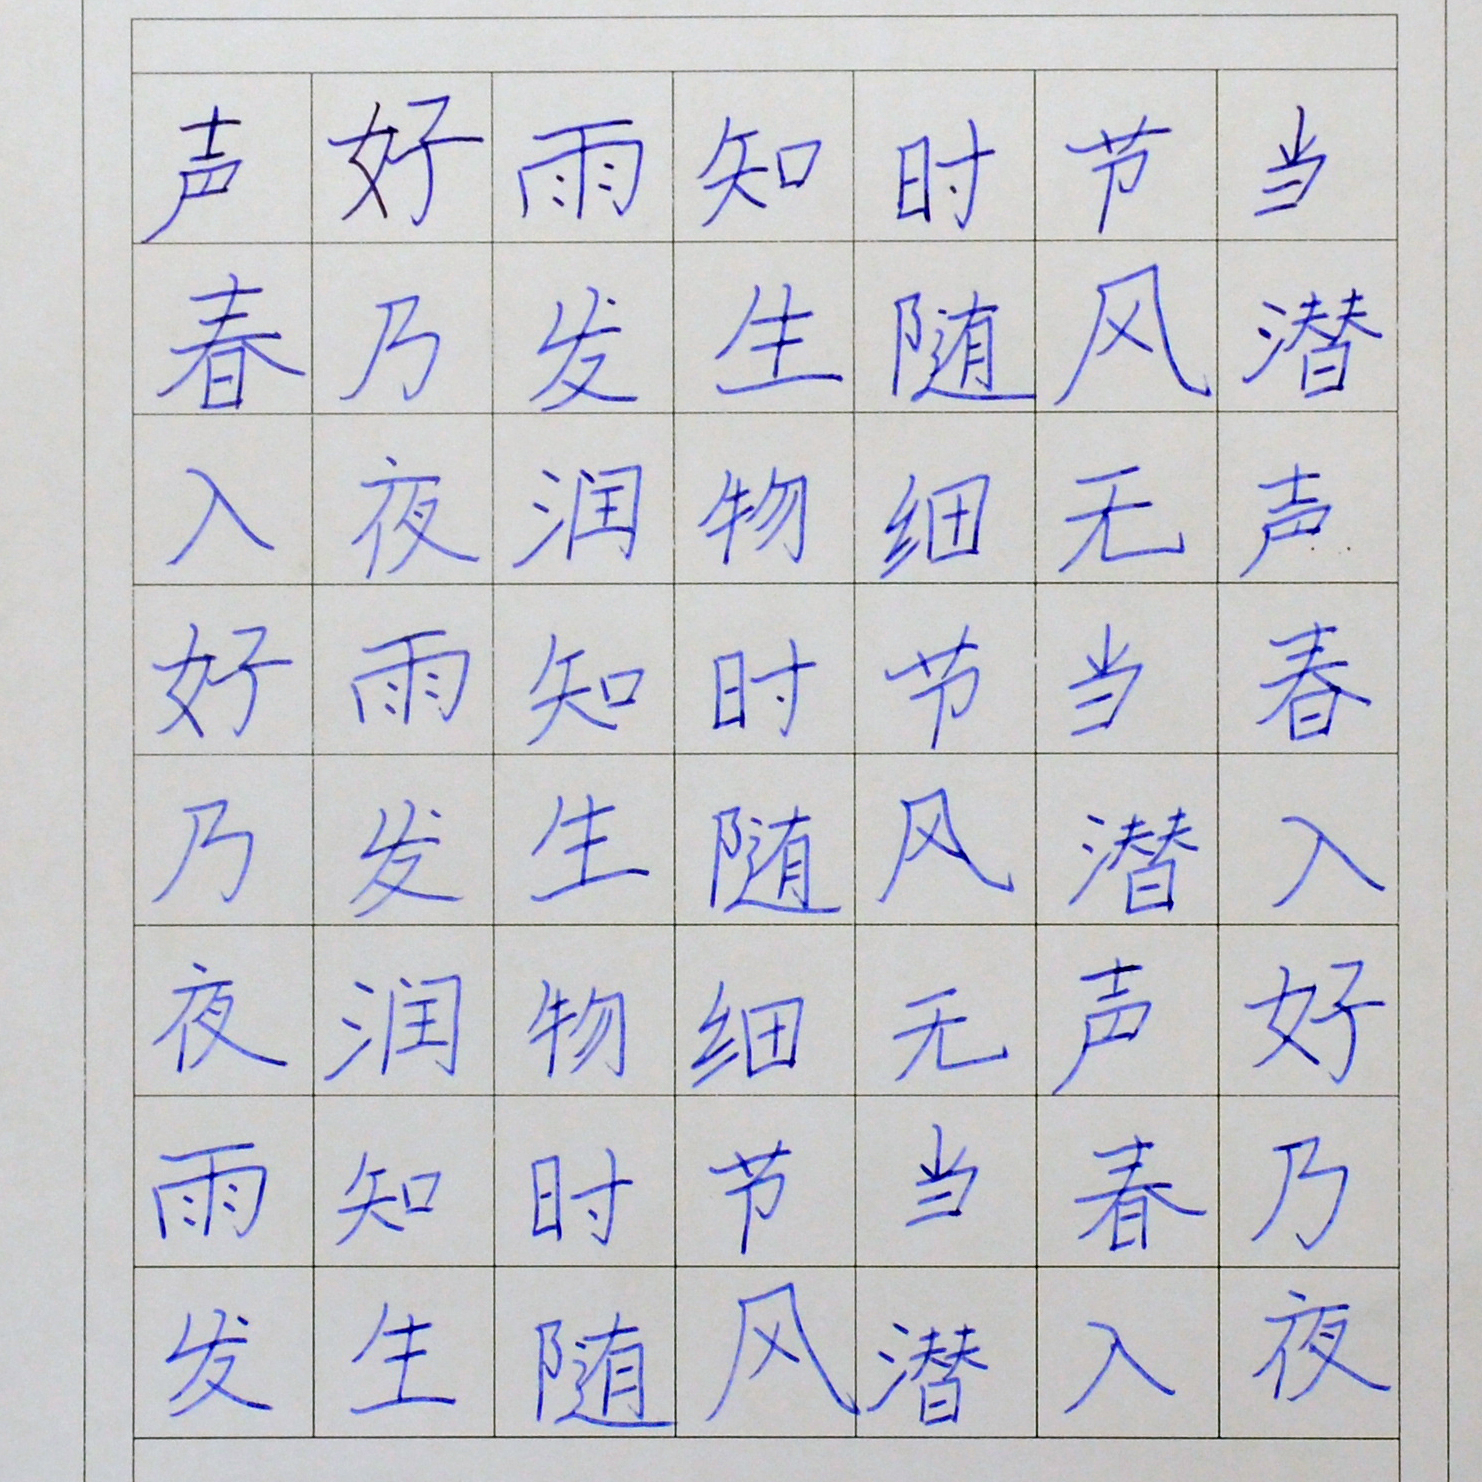 声好雨知时节当
春乃发生随风潜
入夜润物细无声
好雨知时节当春
乃发生随风潜入
夜润物细无声好
雨知时节当春乃
发生随风潜入夜